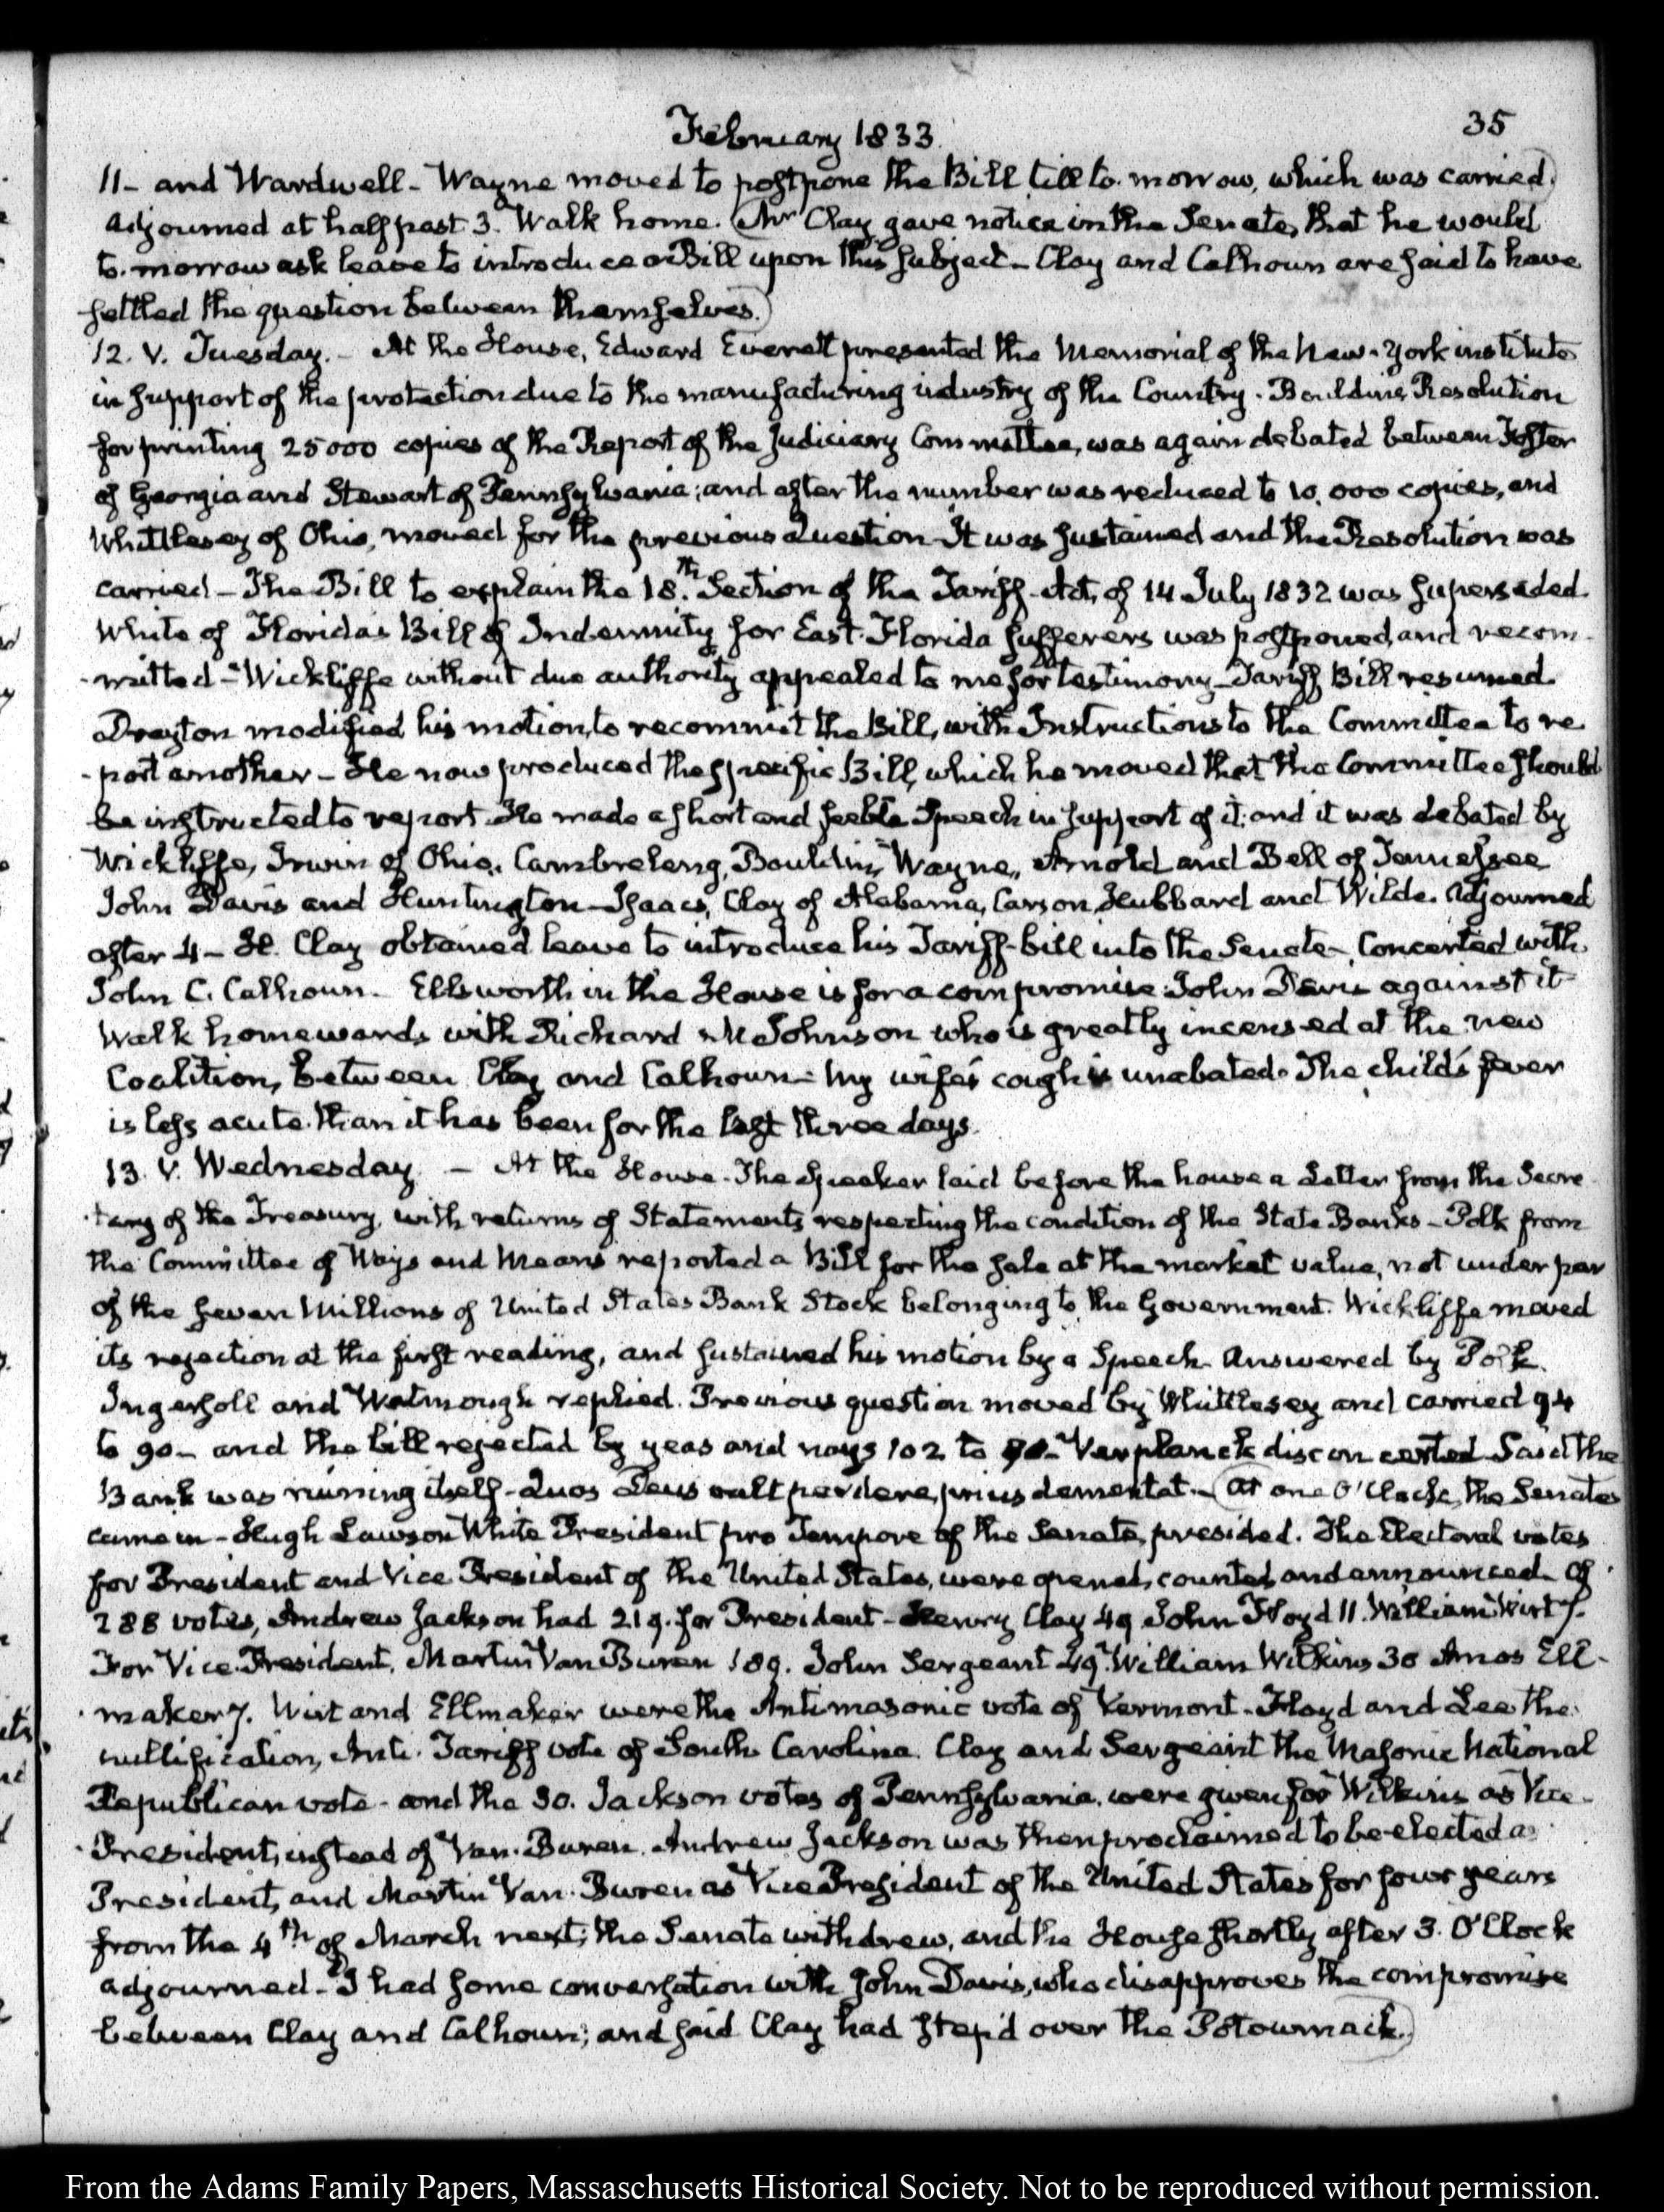 February 1833.
35
11- and Wardwell - Wayne moved to postpone the Bill till to-morrow, which was carried.
Adjourned at half past 3. Walk home. Mr Clay gave notice in the Senate, that he would
to-morrow ask leave to introduce a Bill upon this subject - Clay and Calhoun are said to have
settled the question between themselves.
12. V. Tuesday. - At the House, Edward Everett presented the Memorial of the New-York institute
in support of the protection due to the manufacturing industry of the Country. Bouldin's Resolution
for printing 25000 copies of the Report of the Judiciary Committee, was again debated between Foster
of Georgia and Stewart of Pennsylvania; and after the number was reduced to 10,000 copies, and
Whittlesey of Ohio, moved for the previous Question - It was sustained and the Resolution was
carried - The Bill to explain the 18.th Section of the Tariff-Act, of 14 July 1832 was superseded.
White of Florida's Bill of Indemnity for East-Florida sufferers was postponed, and recom-
-mitted - Wickliffe without due authority appealed to me for testimony - Tariff Bill resumed.
Drayton modified his motion, to recommit the Bill, with Instructions to the Committee to re-
-port another - He now produced the specific Bill, which he moved that the Committee should
be instructed to report. He made a short and feeble Speech in support of it; and it was debated by
Wickliffe, Irwin of Ohio, Cambreleng, Bouldin, Wayne, Arnold and Bell of Tennessee
John Davis and Huntington - Isaacs, Clay of Alabama, Carson, Hubbard and Wilde. Adjourned
after 4 - H. Clay obtained leave to introduce his Tariff-bill into the Senate - Concerted with
John C. Calhoun - Ellsworth in the House is for a compromise: John Davis against it
Walk homewards with Richard M Johnson who is greatly incensed at the new
Coalition, between Clay and Calhoun - My wife's cough is unabated. The child's fever
is less acute than it has been for the last three days.
13. V. Wednesday. - At the House. The Speaker laid before the house a Letter from the Secre-
-tary of the Treasury, with returns of Statements respecting the condition of the State Banks - Polk from
the Committee of Ways and Means reported a Bill for the sale at the market value, not under par
of the seven Millions of United States Bank Stock belonging to the Government. Wickliffe moved
its rejection at the first reading, and sustained his motion by a Speech. Answered by Polk.
Ingersoll and Watmough replied. Previous question moved by Whittlesey and carried 94
to 90 - and the bill rejected by yeas and nays 102 to - Verplanck disconcerted - Said the
Bank was ruining itself - Quos Deus vult perdere, prius dementat. - At one O'Clock, the Senate
came in - Hugh Lawson White President pro Tempore of the Senate, presided. The Electoral votes
for President and Vice President of the United States, were opened, counted and announced - Of
288 votes, Andrew Jackson had 219. for President - Henry Clay 49 John Floyd 11. William Wirt 7.
For Vice-President, Martin Van Buren 189. John Sergeant 49. William Wilkins 30 Amos Ell-
-maker 7. Wirt and Ellmaker were the Antimasonic vote of Vermont - Floyd and Lee the
nullification, Anti-Tariff vote of South Carolina. Clay and Sergeant the Masonic National
Republican vote - and the 30. Jackson votes of Pennsylvania, were given for Wilkins as Vice-
-President, instead of Van-Buren. Andrew Jackson was then proclaimed to be elected as
President, and Martin Van-Buren as Vice President of the United States for four years
from the 4th of March next; the Senate withdrew, and the House shortly after 3. O'Clock
adjourned - I had some conversation with John Davis, who disapproves the compromise
between Clay and Calhoun; and said Clay had step'd over the Potowmack.
From the Adams Family Papers, Massachusetts Historical Society. Not to be reproduced without permission.